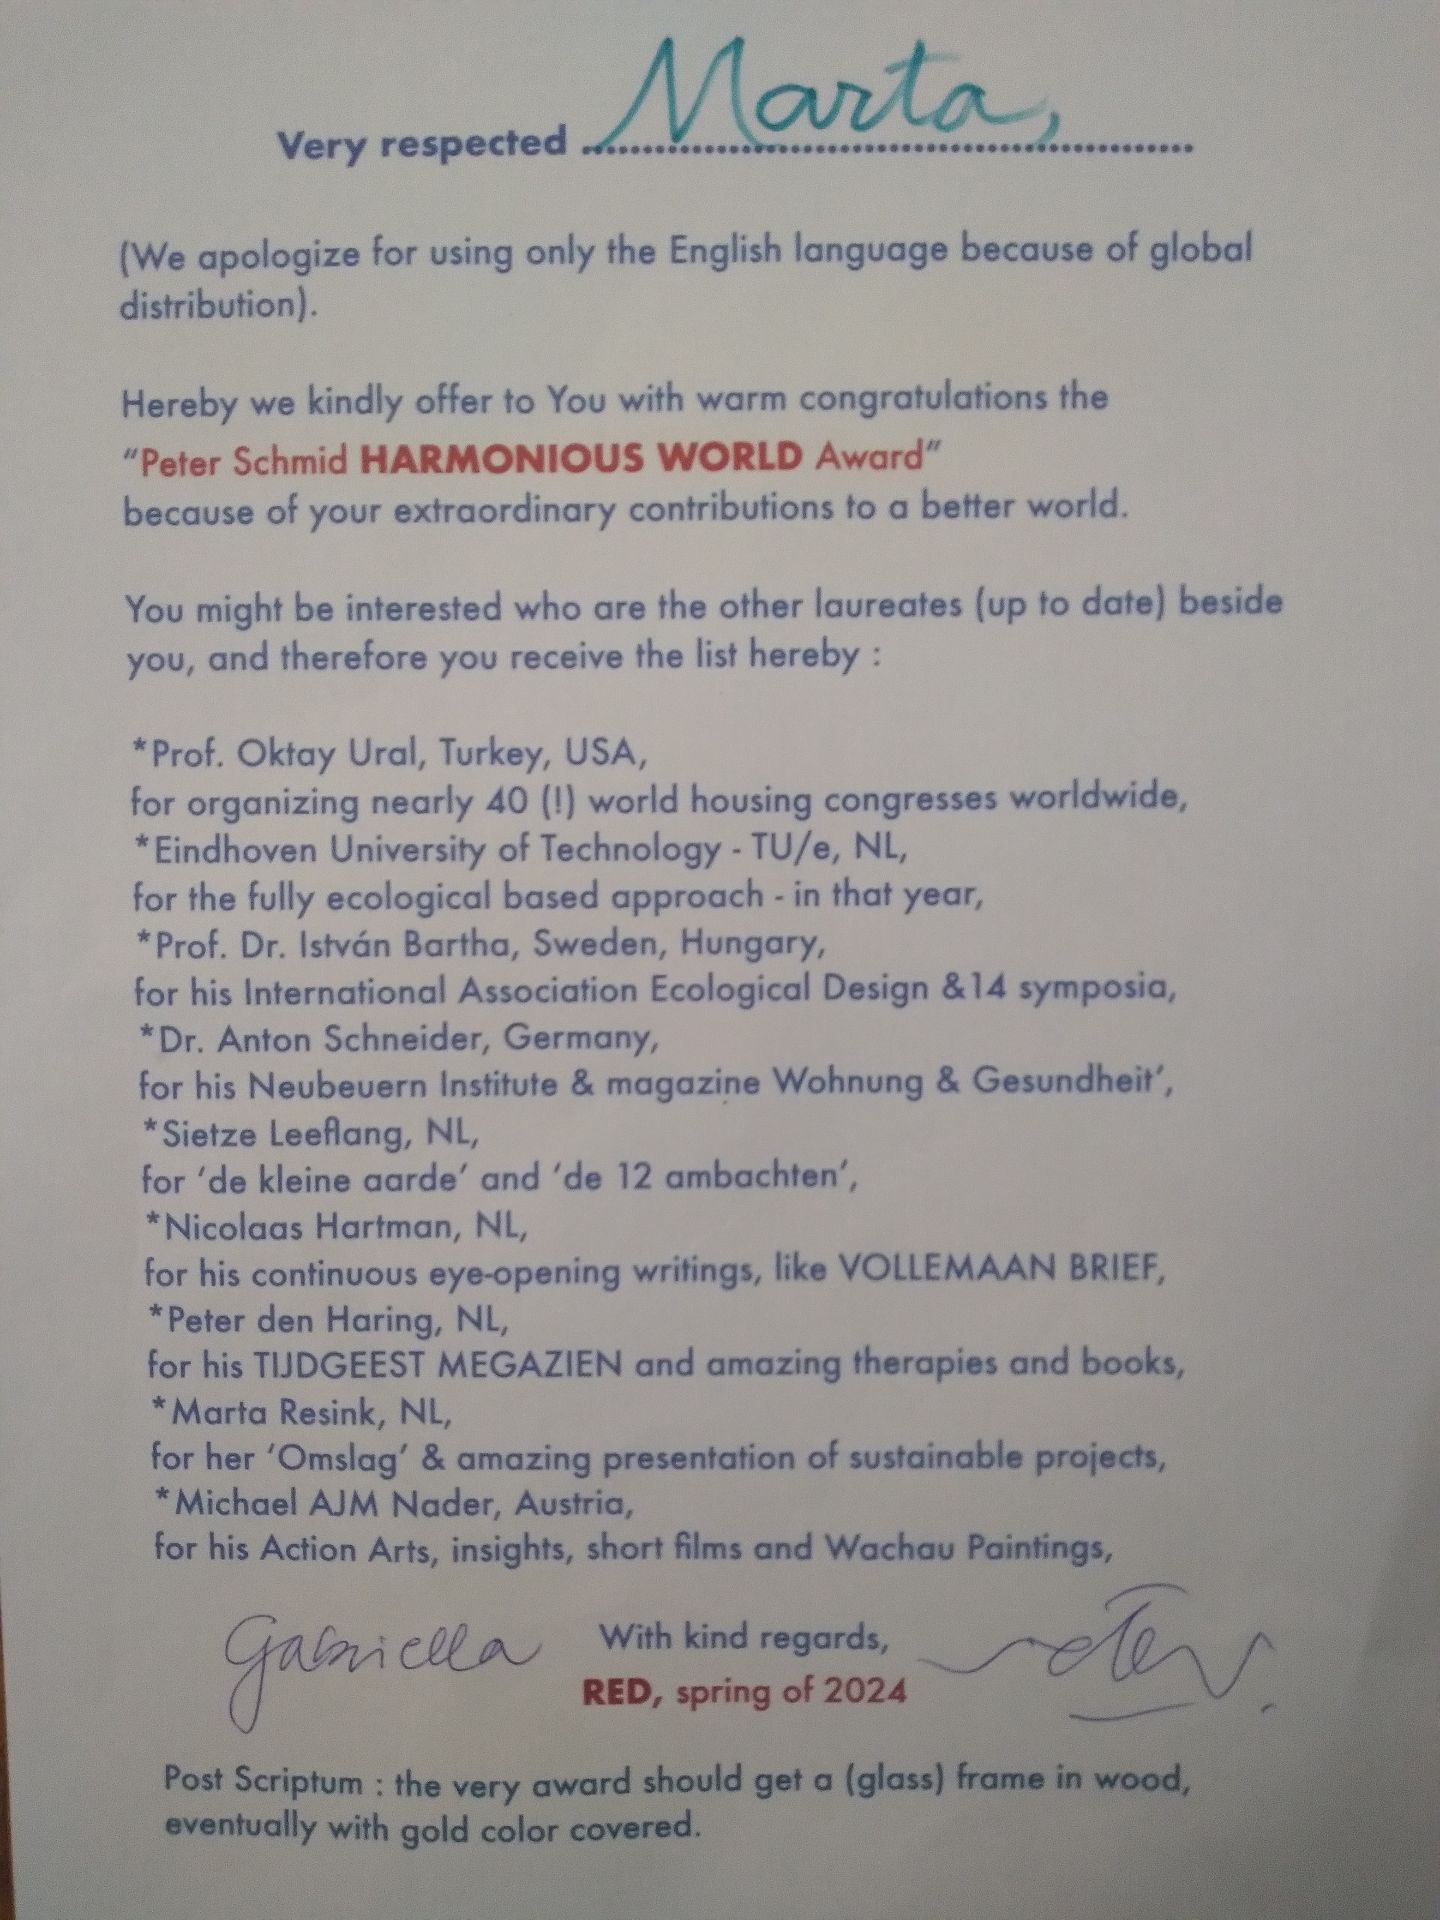 Very respected Marta,
(We apologize for using only the English language because of global
distribution).
Hereby we kindly offer to You with warm congratulations the
“Peter Schmid HARMONIOUS WORLD Award”
because of your extraordinary contributions to a better world.
You might be interested who are the other laureates (up to date) beside
you, and therefore you receive the list hereby :
*Prof. Oktay Ural, Turkey, USA,
for organizing nearly 40 (!) world housing congresses worldwide,
*Eindhoven University of Technology - TU/e, NL,
for the fully ecological based approach - in that year,
*Prof. Dr. István Bartha, Sweden, Hungary,
for his International Association Ecological Design &14 symposia,
*Dr. Anton Schneider, Germany,
for his Neubeuern Institute & magazine Wohnung & Gesundheit’,
*Sietze Leeflang, NL,
for ‘de kleine aarde’ and ‘de 12 ambachten’,
*Nicolaas Hartman, NL,
for his continuous eye-opening writings, like VOLLEMAAN BRIEF,
*Peter den Haring, NL,
for his TIJDGEEST MEGAZIEN and amazing therapies and books,
*Marta Resink, NL,
for her ‘Omslag’ & amazing presentation of sustainable projects,
*Michael AJM Nader, Austria,
for his Action Arts, insights, short films and Wachau Paintings,
Gabriella With kind regards,
RED, spring of 2024
Post Scriptum : the very award should get a (glass) frame in wood,
eventually with gold color covered.